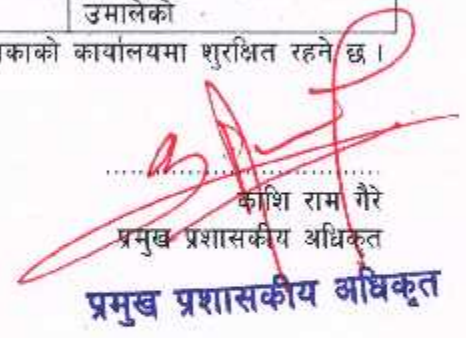 उमालेको
काको कार्यालयमा शुरक्षित रहने छ ।
काशि राम गैरे
प्रमुख प्रशासकीय अधिकृत
प्रमुख प्रशासकीय अधिकृत